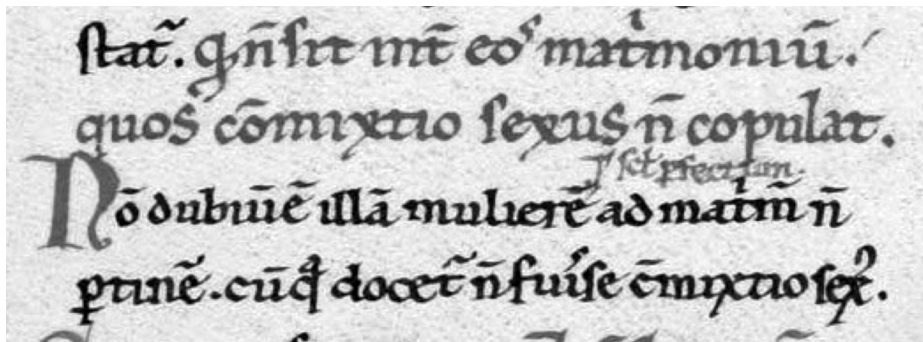 ſtat̃. qd̃ n̄ ſit int̃ eoſ mat'moniū.
quoſ cōmixtio ſexus n̄ copulat.
ſcł pfectum.
Nō dubiū ē illā mulierē ad mat'm̄ n̄
ꝑtinē. cū qͣ docet̃ n̄ fuiſſe c̄mixtio ſex᷒.